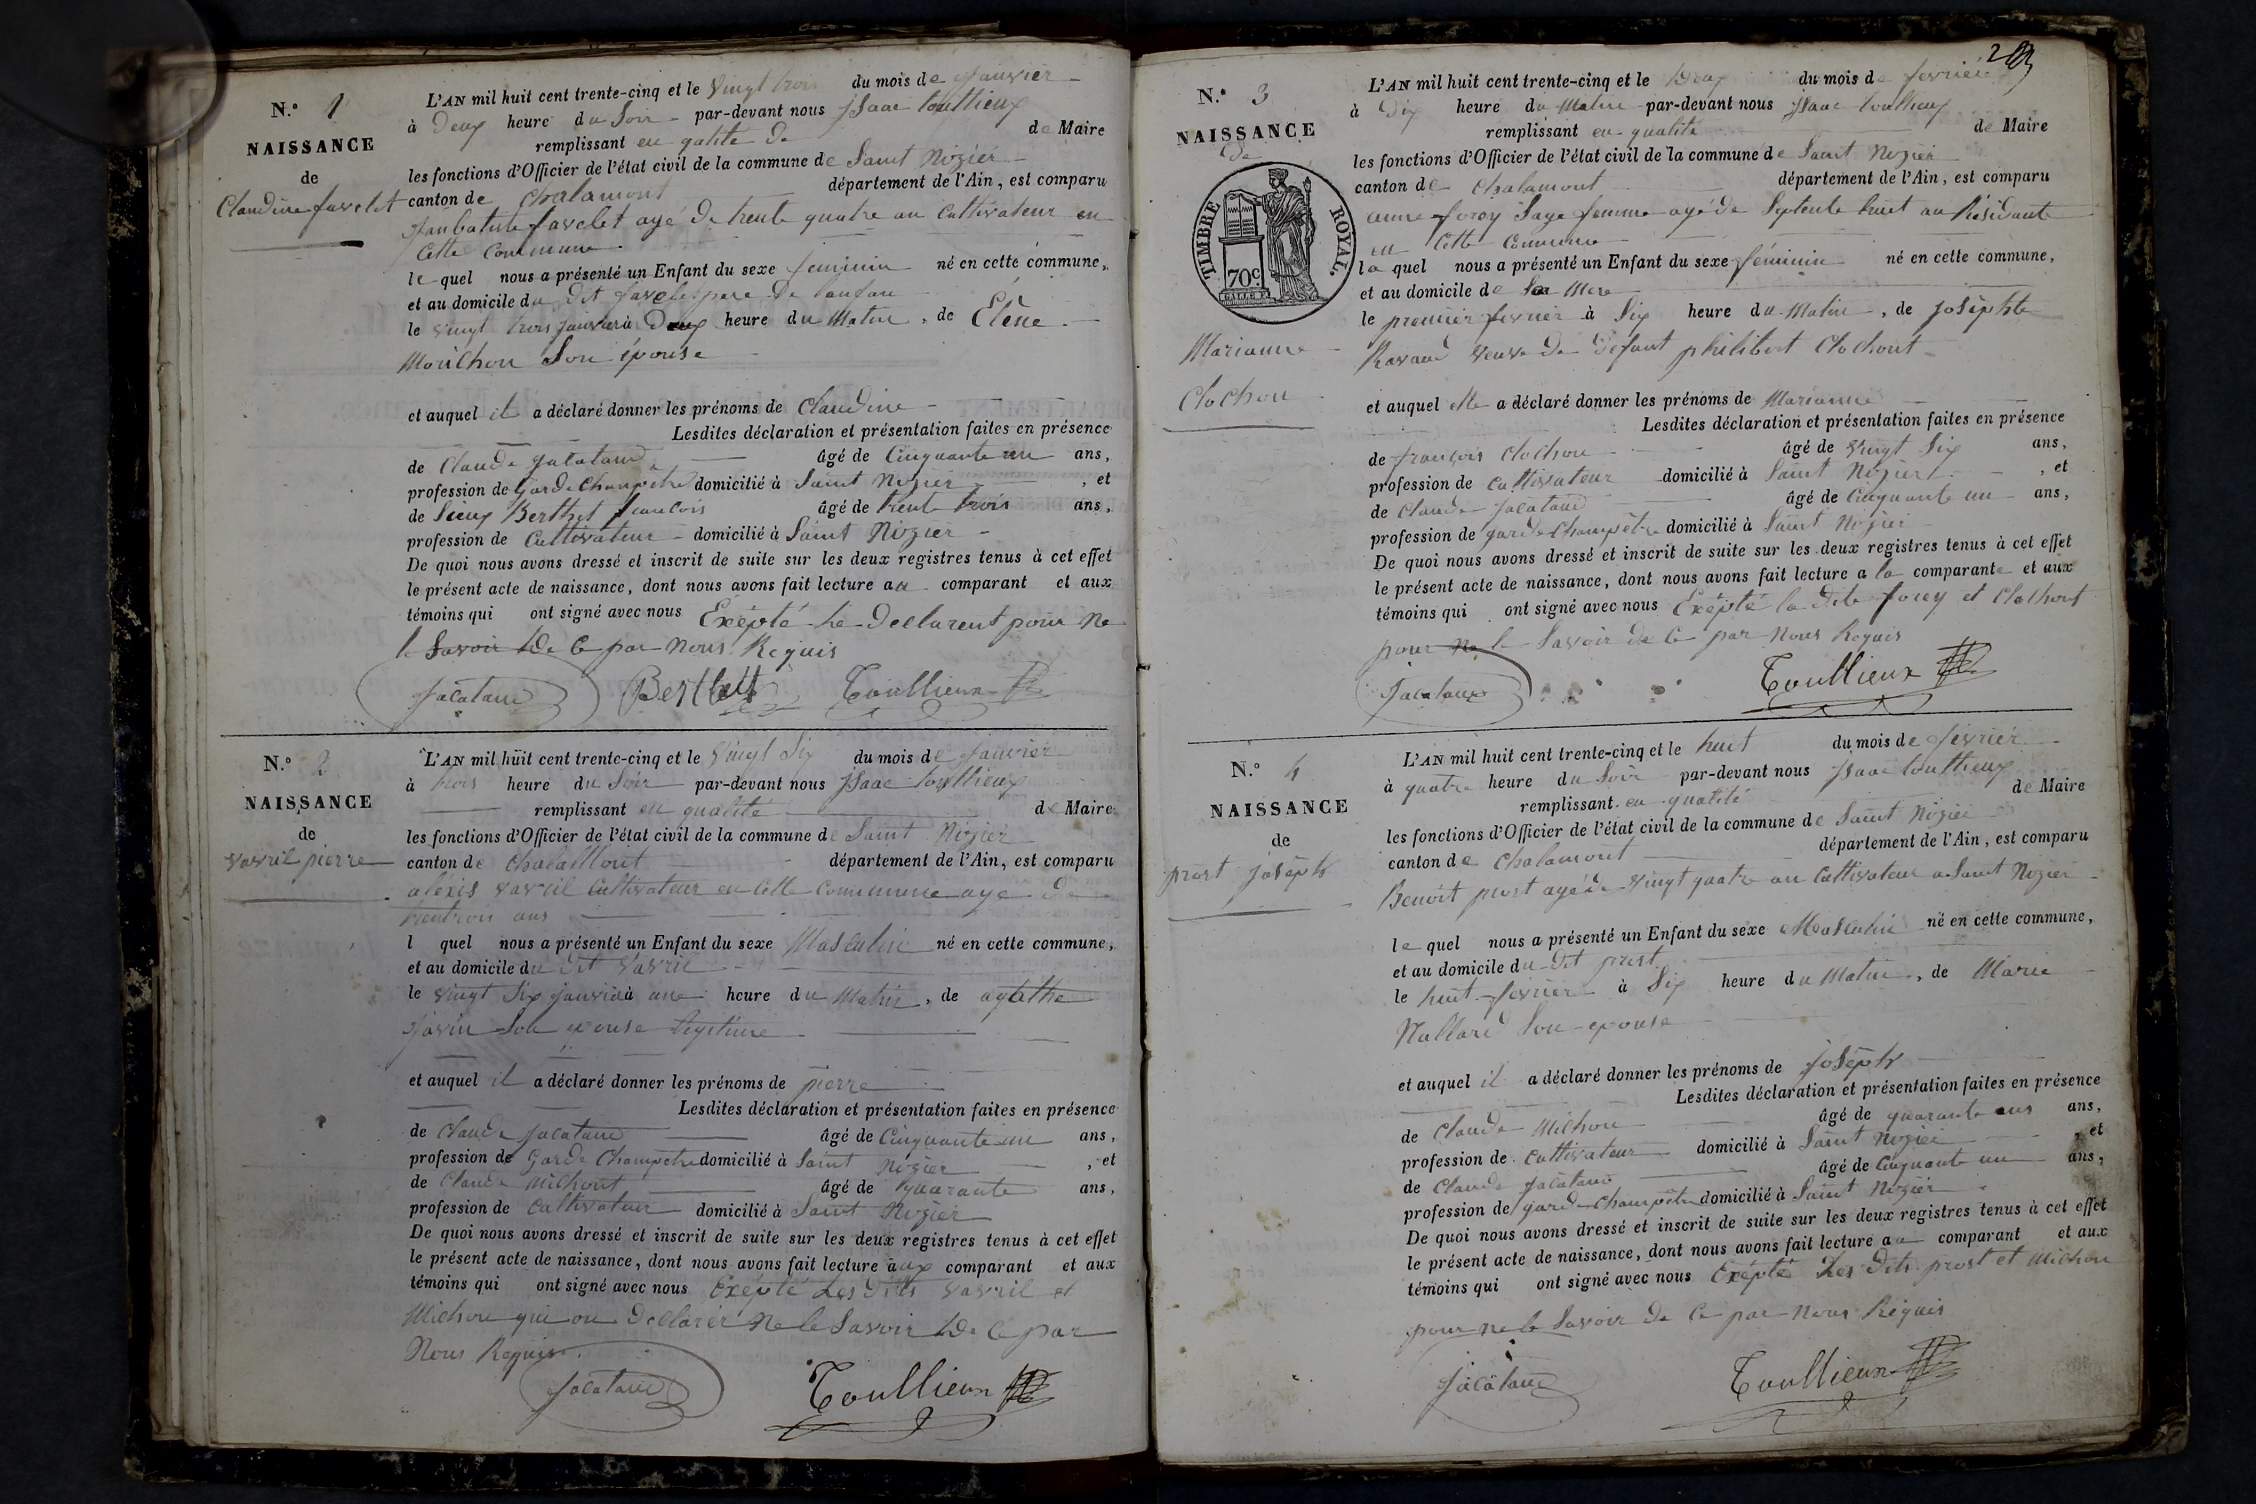 N.º 1
NAISSANCE
de
Claudine favelet
L'AN mil huit cent trente-cinq et le vingt trois du mois de janvier
à Deux heure du Soir par-devant nous jsaac toullieux
remplissant en qalité de de Maire
les fonctions d'Officier de l'état civil de la commune de Saint Nizier
canton de chalamont département de l'Ain, est comparu
favelet agé de trente quatre an Cultivateur en
Cette Commune
le quel nous a présenté un Enfant du sexe feminin né en cette commune,
et au domicile du dit favelet pere De lanfan
le vingt trois janvier à Deux heure du Matin, de Elène
Mouchon Son épouse
et auquel il a déclaré donner les prénoms de Claudine
Lesdites déclaration et présentation faites en présence
de Claude jacataud âgé de Cinquante un ans,
profession de Garde Champetre domicilié à Saint Nizier, et
de Sieux Berthet francois âgé de trente trois ans,
profession de Cultivateur domicilié à Saint Nizier
De quoi nous avons dressé et inscrit de suite sur les deux registres tenus à cet effet
le présent acte de naissance, dont nous avons fait lecture au comparant et aux
témoins qui ont signé avec nous Exépté Le Declarent pour Ne
le Savoir De Ce par Nous Requis
Jacataud Berthet Toullieux
N.º 2
NAISSANCE
de
vavril pierre
L'AN mil huit cent trente-cinq et le vingt Six du mois de janvier
à trois heure du Soir par-devant nous jsaac toullieux
remplissant en qualité de Maire
les fonctions d'Officier de l'état civil de la commune de Saint Nizier
canton de chalamont département de l'Ain, est comparu
aléxis vavril Cultivateur en Cette Commune age de
trentrois ans
l quel nous a présenté un Enfant du sexe Masculin né en cette commune,
et au domicile du Dit vavril
le vingt Six janvier à une heure du Matin, de agathe
javin Son epouse legitime
et auquel il a déclaré donner les prénoms de pierre
Lesdites déclaration et présentation faites en présence
de Claude jacataud âgé de Cinquante un ans,
profession de Garde Champetre domicilié à Saint Nizier, et
de Claude Michont âgé de quarante ans,
profession de Cultivateur domicilié à Saint Nizier
De quoi nous avons dressé et inscrit de suite sur les deux registres tenus à cet effet
le présent acte de naissance, dont nous avons fait lecture aux comparant et aux
témoins qui ont signé avec nous Exépté Les Dits vavril et
Michon qui on Déclarér Ne le Savoir De Ce par
Nous Requis
Jacataud Toullieux
N.º 3
NAISSANCE
de
TIMBRE ROYAL.
70c
Marianne
Clochon
L'AN mil huit cent trente-cinq et le Deux du mois de fevriér
à Dix heure du Matin par-devant nous jsaac toullieux
remplissant en qualité de Maire
les fonctions d'Officier de l'état civil de la commune de Saint Nizier
canton de Chalamont département de l'Ain, est comparu
anne forey Sage femme agé de Septente huit an Résidante
en Cette Commune
la quel nous a présenté un Enfant du sexe féminin né en cette commune,
et au domicile de Sa Mere
le premier fevrier à Six heure du Matin, de josephte
Ravaud veuve De Défunt philibert Clochont
et auquel elle a déclaré donner les prénoms de Marianne
Lesdites déclaration et présentation faites en présence
de françois Clochon âgé de vingt Six ans,
profession de Cultivateur domicilié à Saint Nizier, et
de Claude jacataud âgé de Cinquante un ans,
profession de garde Champêtre domicilié à Saint Nizier
De quoi nous avons dressé et inscrit de suite sur les deux registres tenus à cet effet
le présent acte de naissance, dont nous avons fait lecture a la comparante et aux
témoins qui ont signé avec nous Exépté la Dite forey et Clochont
pour ne le Savoir de Ce par Nous Requis
Jacataud Toullieux
N.º 4
NAISSANCE
de
prost joséph
L'AN mil huit cent trente-cinq et le huit du mois de février
à quatre heure du Soir par-devant nous jsaac toullieux
remplissant en qualité de Maire
les fonctions d'Officier de l'état civil de la commune de Saint Nizier
canton de Chalamont département de l'Ain, est comparu
Benoit prost agé de vingt quatre an Cultivateur a Saint Nizier
le quel nous a présenté un Enfant du sexe Masculin né en cette commune,
et au domicile du Dit prost
le huit fevrier à Six heure du Matin, de Marie
Nallard Son epouse
et auquel il a déclaré donner les prénoms de joséph
Lesdites déclaration et présentation faites en présence
de Claude Michon âgé de quarante ans ans,
profession de Cultivateur domicilié à Saint Nizier et
de Claude jacataud âgé de Cinquante un ans,
profession de garde Champêtre domicilié à Saint Nizier
De quoi nous avons dressé et inscrit de suite sur les deux registres tenus à cet effet
le présent acte de naissance, dont nous avons fait lecture au comparant et aux
témoins qui ont signé avec nous Exépté Les Dits prost et Michon
pour ne le Savoir de Ce par Nous Requis
Jacataud Toullieux